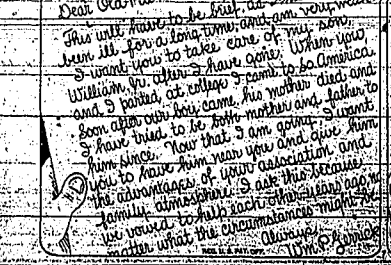 Dear Old
This will have to be brief, as I
been ill for a long time, and am very weak
I want you to take care of my son,
William, Jr., after I have gone. When you
and I parted at college I came to So. America.
Soon after our boy came, his mother died and
I have tried to be both mother and father to
him since. Now that I am going, I want
you to have him near you and give him
the advantages of your association and
family atmosphere. I ask this because
we vowed to help each other years ago no
matter what the circumstances might be
Always,
Wm. P.
REG. U. S. PAT. OFF.